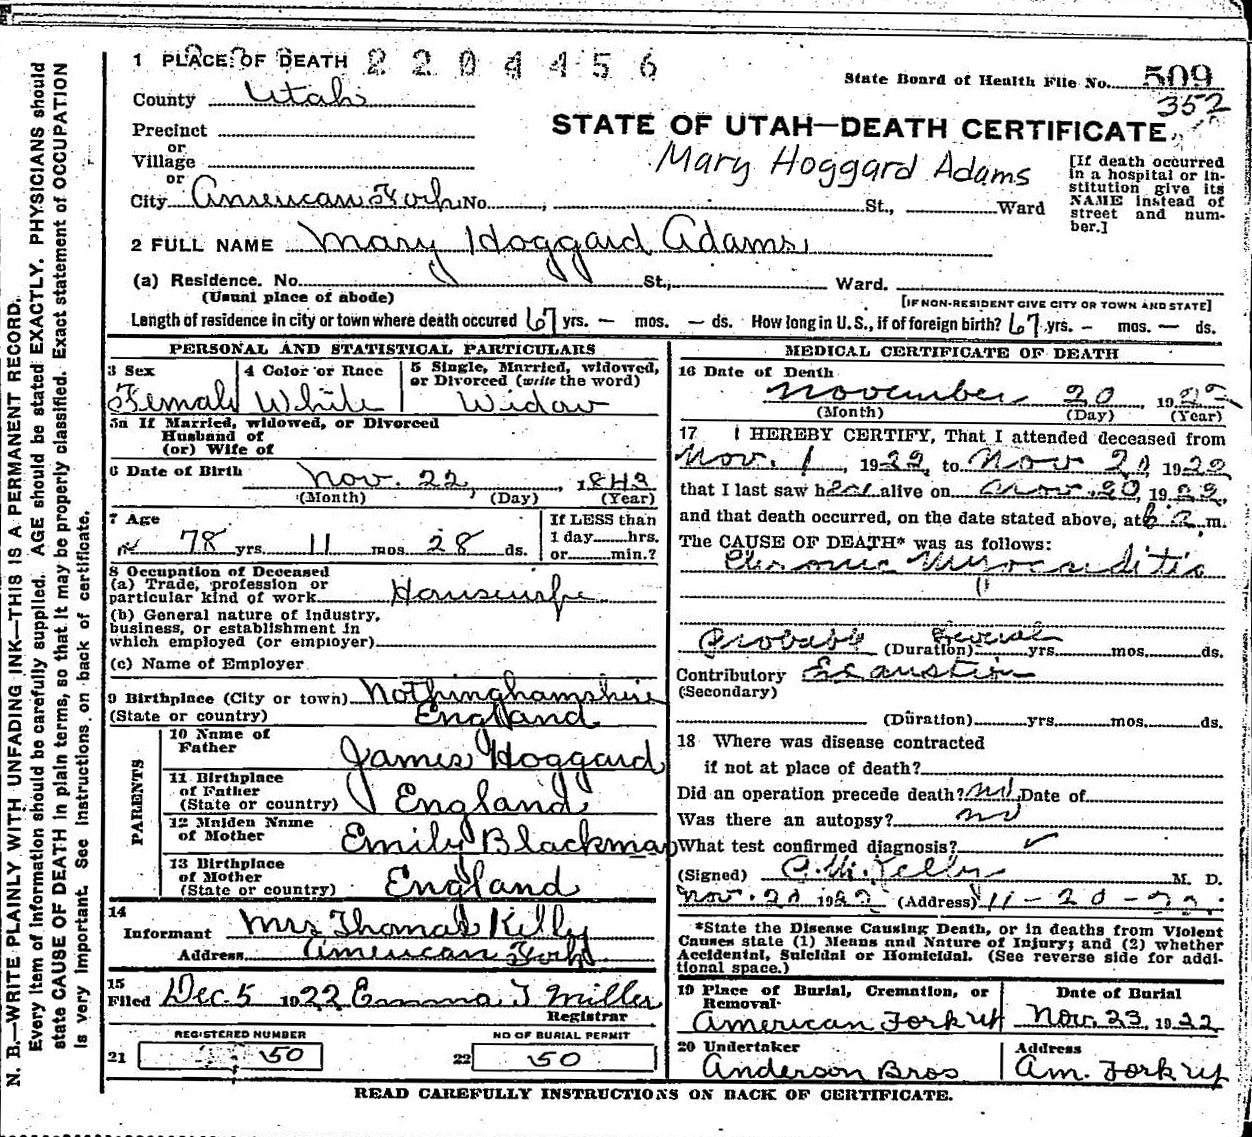 1 PLACE OF DEATH 2204456
State Board of Health File No. 509
County Utah
352
Precinct
STATE OF UTAH—DEATH CERTIFICATE
or
Village
Mary Hoggard Adams
[If death occurred in a hospital or institution give its NAME instead of street and number.]
or
City American Fork No. , St., Ward
2 FULL NAME Mary Hoggard Adams
(a) Residence. No. St., Ward.
(Usual place of abode)
[IF NON-RESIDENT GIVE CITY OR TOWN AND STATE]
Length of residence in city or town where death occured 67 yrs. — mos. — ds. How long in U.S., if of foreign birth? 67 yrs. — mos. — ds.
PERSONAL AND STATISTICAL PARTICULARS
3 Sex
Female
4 Color or Race
White
5 Single, Married, widowed,
or Divorced (write the word)
Widow
5a If Married, widowed, or Divorced
Husband of
(or) Wife of
6 Date of Birth Nov. 22, 1843
(Month) (Day) (Year)
7 Age
78 yrs. 11 mos. 28 ds.
If LESS than
1 day hrs.
or min.?
8 Occupation of Deceased
(a) Trade, profession or
particular kind of work Housewife
(b) General nature of Industry,
business, or establishment in
which employed (or employer)
(c) Name of Employer
9 Birthplace (City or town) Nothinghamshire
(State or country) England
PARENTS
10 Name of
Father James Hoggard
11 Birthplace
of Father
(State or country) England
12 Maiden Name
of Mother Emily Blackman
13 Birthplace
of Mother
(State or country) England
14
Informant Mrs Thomas Kelly
Address American Fork
15
Filed Dec. 5 1922 Emma J Miller
Registrar
REGISTERED NUMBER
21 50
NO OF BURIAL PERMIT
22 50
MEDICAL CERTIFICATE OF DEATH
16 Date of Death
November 20, 1922
(Month) (Day) (Year)
17 I HEREBY CERTIFY, That I attended deceased from
Nov. 1, 1922, to Nov 20 1922
that I last saw her alive on Nov. 20, 1922,
and that death occurred, on the date stated above, at m.
The CAUSE OF DEATH* was as follows:
Chronic Myocarditis
Probably (Duration) Several yrs. mos. ds.
Contributory Exaustion
(Secondary)
(Duration) yrs. mos. ds.
18 Where was disease contracted
if not at place of death?
Did an operation precede death? no Date of
Was there an autopsy? no
What test confirmed diagnosis?
(Signed) M. D.
Nov. 20 1922 (Address) 11-20-22.
*State the Disease Causing Death, or in deaths from Violent
Causes state (1) Means and Nature of Injury; and (2) whether
Accidental, Suicidal or Homicidal. (See reverse side for additional space.)
19 Place of Burial, Cremation, or
Removal
American Fork Ut
Date of Burial
Nov. 23, 1922
20 Undertaker
Anderson Bros
Address
Am. Fork Ut
READ CAREFULLY INSTRUCTIONS ON BACK OF CERTIFICATE.
N. B.—WRITE PLAINLY WITH UNFADING INK—THIS IS A PERMANENT RECORD.
Every item of information should be carefully supplied. AGE should be stated EXACTLY. PHYSICIANS should
state CAUSE OF DEATH in plain terms, so that it may be properly classified. Exact statement of OCCUPATION
is very important. See instructions on back of certificate.